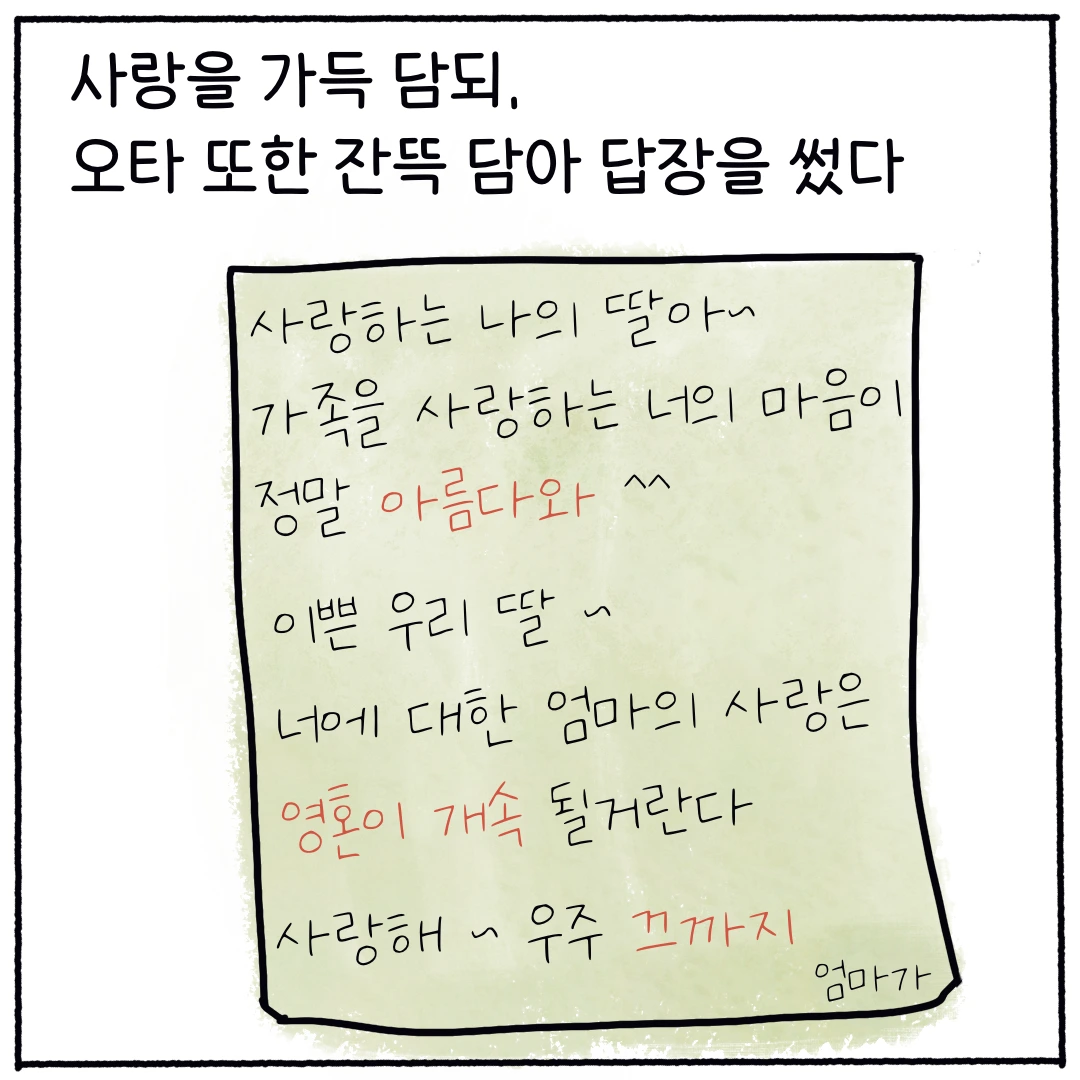 사랑을 가득 담되,
오타 또한 잔뜩 담아 답장을 썼다
사랑하는 나의 딸아~
가족을 사랑하는 너의 마음이
정말 아름다와 ^^
이쁜 우리 딸 ~
너에 대한 엄마의 사랑은
영혼이 개속 될거란다
사랑해 ~ 우주 끄까지
엄마가